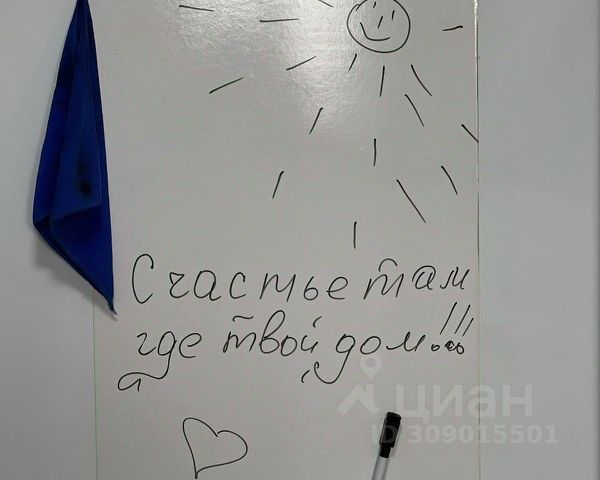 Счастье там
где твой дом!!!
циан
ID 309015501